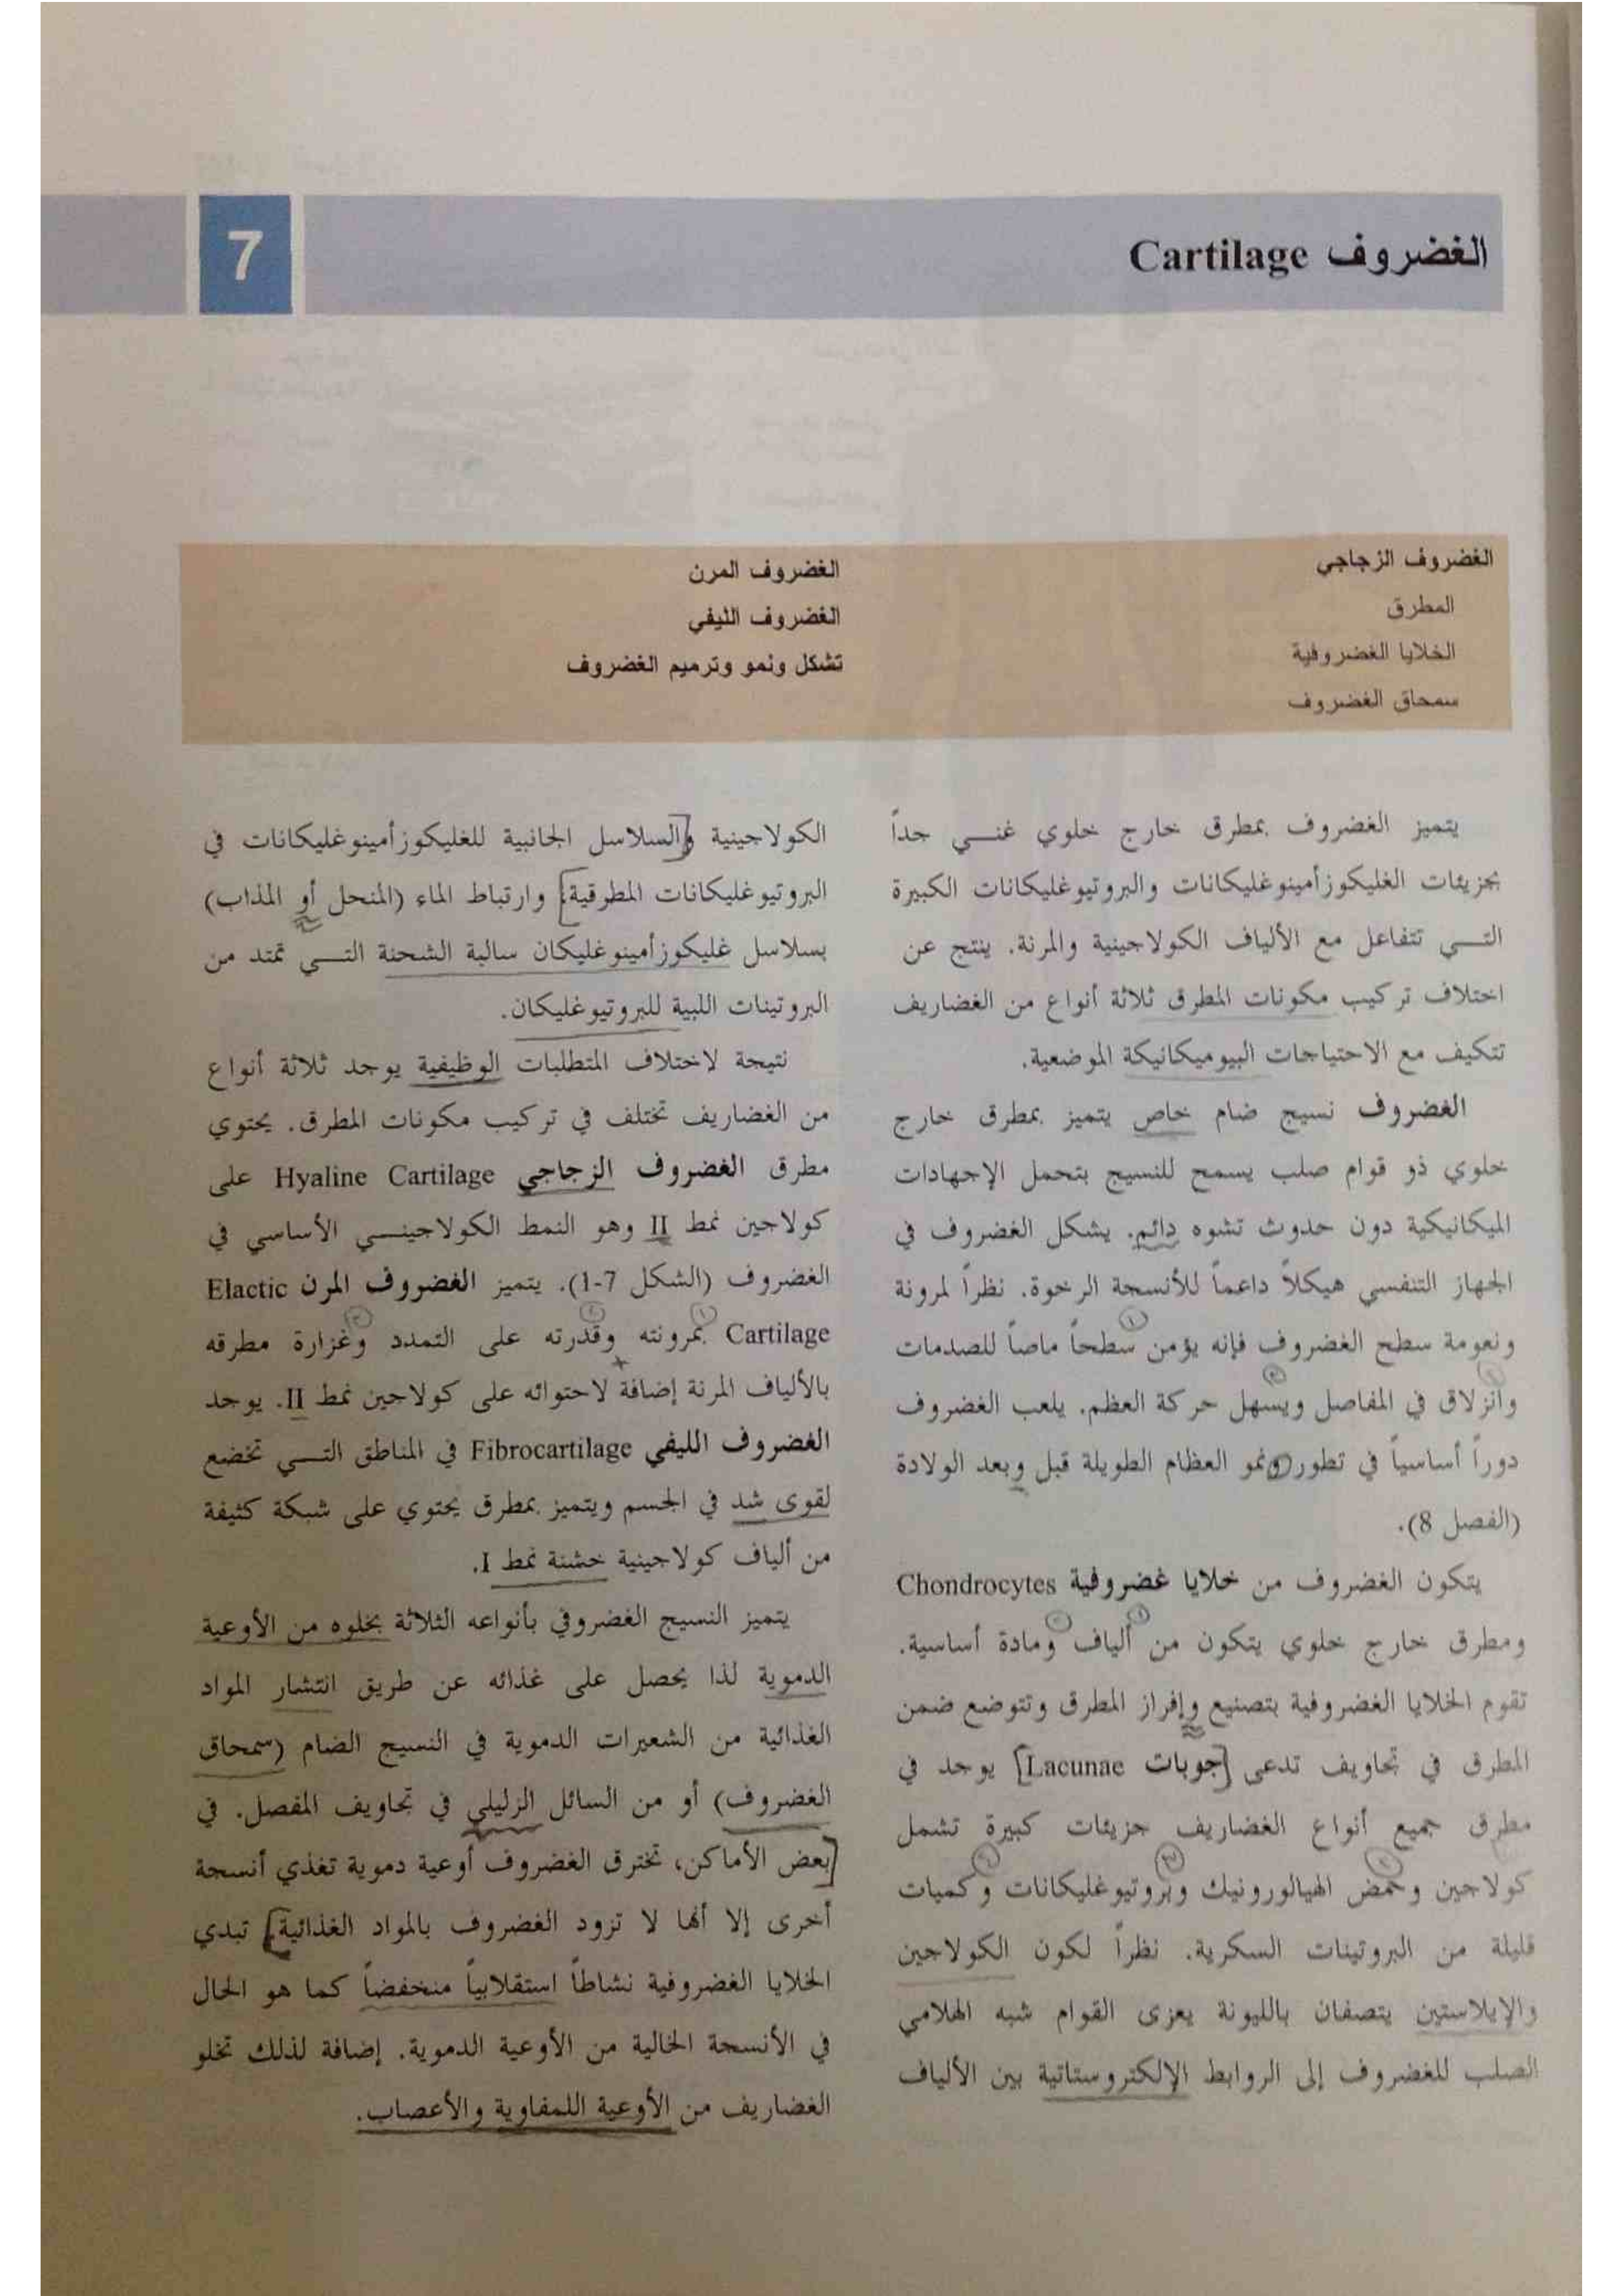 الغضروف Cartilage
7
الغضروف الزجاجي
المطرق
الخلايا الغضروفية
سمحاق الغضروف
الغضروف المرن
الغضروف الليفي
تشكل ونمو وترميم الغضروف
يتميز الغضروف بمطرق خارج خلوي غنـــي جداً
بجزيئات الغليكوزأمينوغليكانات والبروتيوغليكانات الكبيرة
التـــي تتفاعل مع الألياف الكولاجينية والمرنة. ينتج عن
اختلاف تركيب مكونات المطرق ثلاثة أنواع من الغضاريف
تتكيف مع الاحتياجات البيوميكانيكة الموضعية.
الغضروف نسيج ضام خاص يتميز بمطرق خارج
خلوي ذو قوام صلب يسمح للنسيج بتحمل الإجهادات
الميكانيكية دون حدوث تشوه دائم. يشكل الغضروف في
الجهاز التنفسي هيكلاً داعماً للأنسجة الرخوة. نظراً لمرونة
ونعومة سطح الغضروف فإنه يؤمن سطحاً ماصاً للصدمات
وانزلاق في المفاصل ويسهل حركة العظم. يلعب الغضروف
دوراً أساسياً في تطور ونمو العظام الطويلة قبل وبعد الولادة
(الفصل 8).
يتكون الغضروف من خلايا غضروفية Chondrocytes
ومطرق خارج خلوي يتكون من ألياف ومادة أساسية.
تقوم الخلايا الغضروفية بتصنيع وإفراز المطرق وتتوضع ضمن
المطرق في تجاويف تدعى [جوبات Lacunae] يوجد في
مطرق جميع أنواع الغضاريف جزيئات كبيرة تشمل
كولاجين وحمض الهيالورونيك وبروتيوغليكانات وكميات
قليلة من البروتينات السكرية. نظراً لكون الكولاجين
والإيلاستين يتصفان بالليونة يعزى القوام شبه الهلامي
الصلب للغضروف إلى الروابط الإلكتروستاتية بين الألياف
الكولاجينية و[السلاسل الجانبية للغليكوزأمينوغليكانات في
البروتيوغليكانات المطرقية] وارتباط الماء (المنحل أو المذاب)
بسلاسل غليكوزأمينوغليكان سالبة الشحنة التـــي تمتد من
البروتينات اللبية للبروتيوغليكان.
نتيجة لاختلاف المتطلبات الوظيفية يوجد ثلاثة أنواع
من الغضاريف تختلف في تركيب مكونات المطرق. يحتوي
مطرق الغضروف الزجاجي Hyaline Cartilage على
كولاجين نمط II وهو النمط الكولاجينـــي الأساسي في
الغضروف (الشكل 7-1). يتميز الغضروف المرن Elactic
Cartilage بمرونته وقدرته على التمدد وغزارة مطرقه
بالألياف المرنة إضافة لاحتوائه على كولاجين نمط II. يوجد
الغضروف الليفي Fibrocartilage في المناطق التـــي تخضع
لقوى شد في الجسم ويتميز بمطرق يحتوي على شبكة كثيفة
من ألياف كولاجينية خشنة نمط I.
يتميز النسيج الغضروفي بأنواعه الثلاثة بخلوه من الأوعية
الدموية لذا يحصل على غذائه عن طريق انتشار المواد
الغذائية من الشعيرات الدموية في النسيج الضام (سمحاق
الغضروف) أو من السائل الزليلي في تجاويف المفصل. في
[بعض الأماكن، تخترق الغضروف أوعية دموية تغذي أنسجة
أخرى إلا أنها لا تزود الغضروف بالمواد الغذائية] تبدي
الخلايا الغضروفية نشاطاً استقلابياً منخفضاً كما هو الحال
في الأنسجة الخالية من الأوعية الدموية. إضافة لذلك تخلو
الغضاريف من الأوعية اللمفاوية والأعصاب.